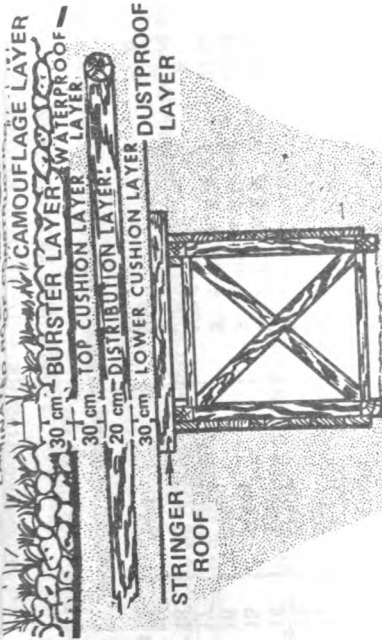 CAMOUFLAGE LAYER
30 cm BURSTER LAYER
WATERPROOF LAYER
30 cm TOP CUSHION LAYER
20 cm DISTRIBUTION LAYER
30 cm LOWER CUSHION LAYER
DUSTPROOF LAYER
STRINGER ROOF